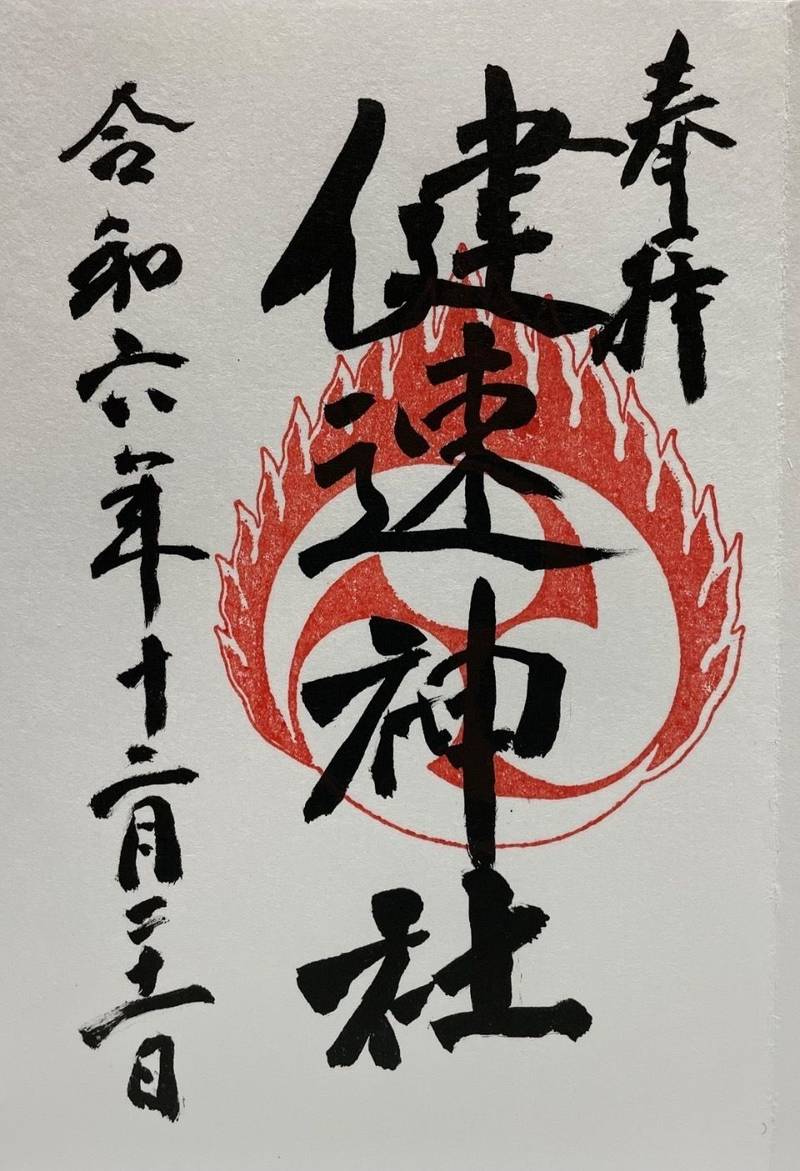 奉拝
健速神社
令和六年十二月二十一日